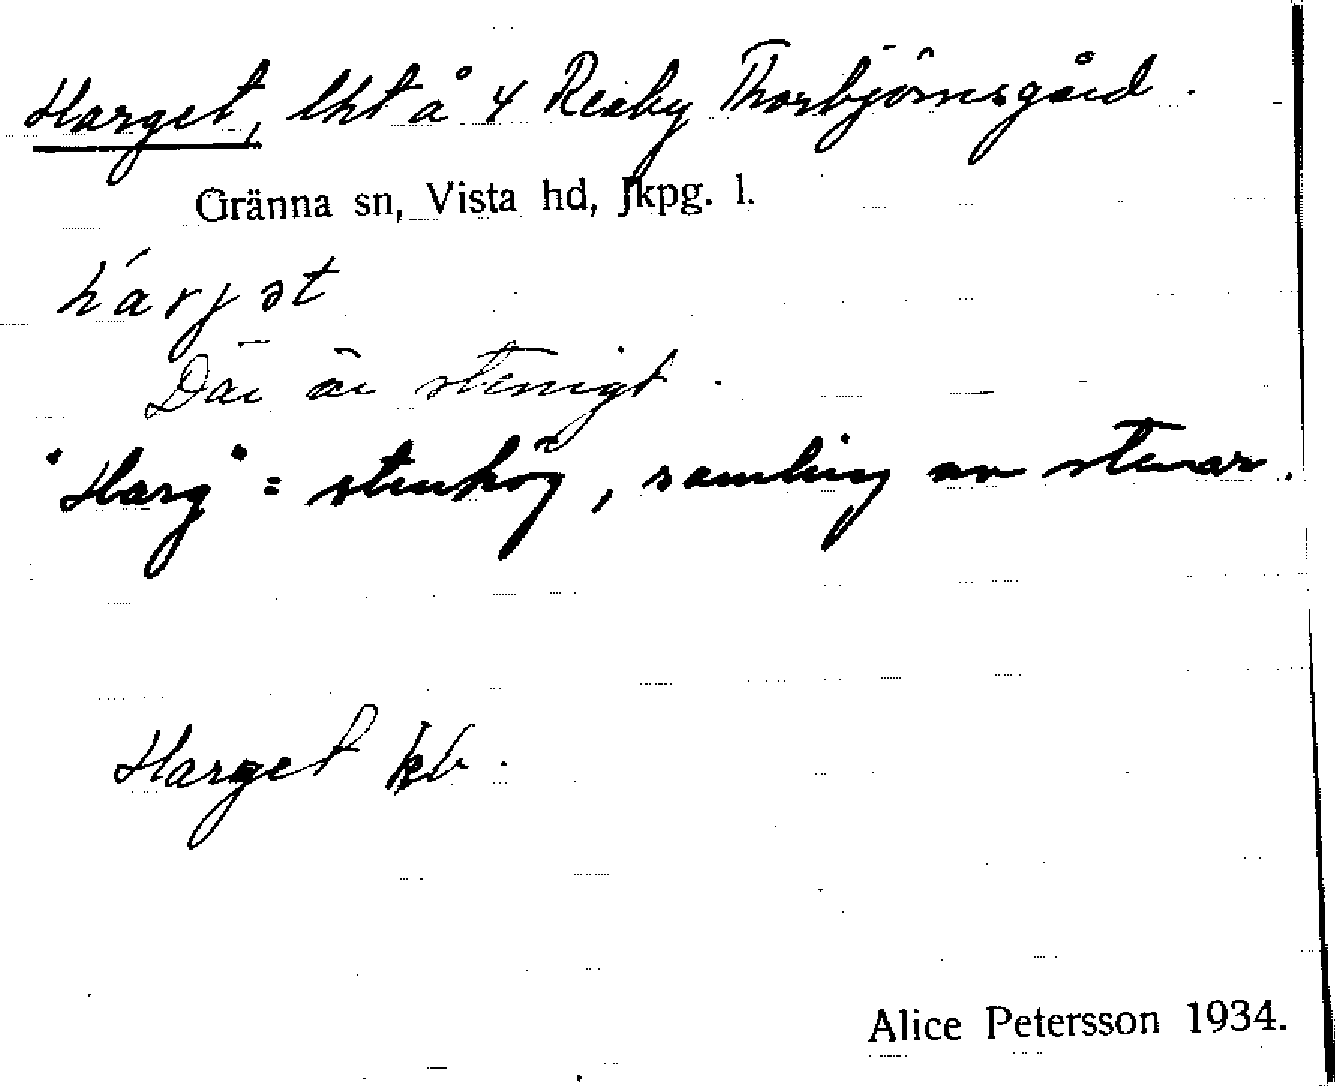 Harget, lht å 4 Reaby Thorbjörnsgård.
Gränna sn, Vista hd, Jkpg. l.
hárjət
Där är stenigt.
"Harg" = stenhög, samling av stenar.
Harget kb.
Alice Petersson 1934.